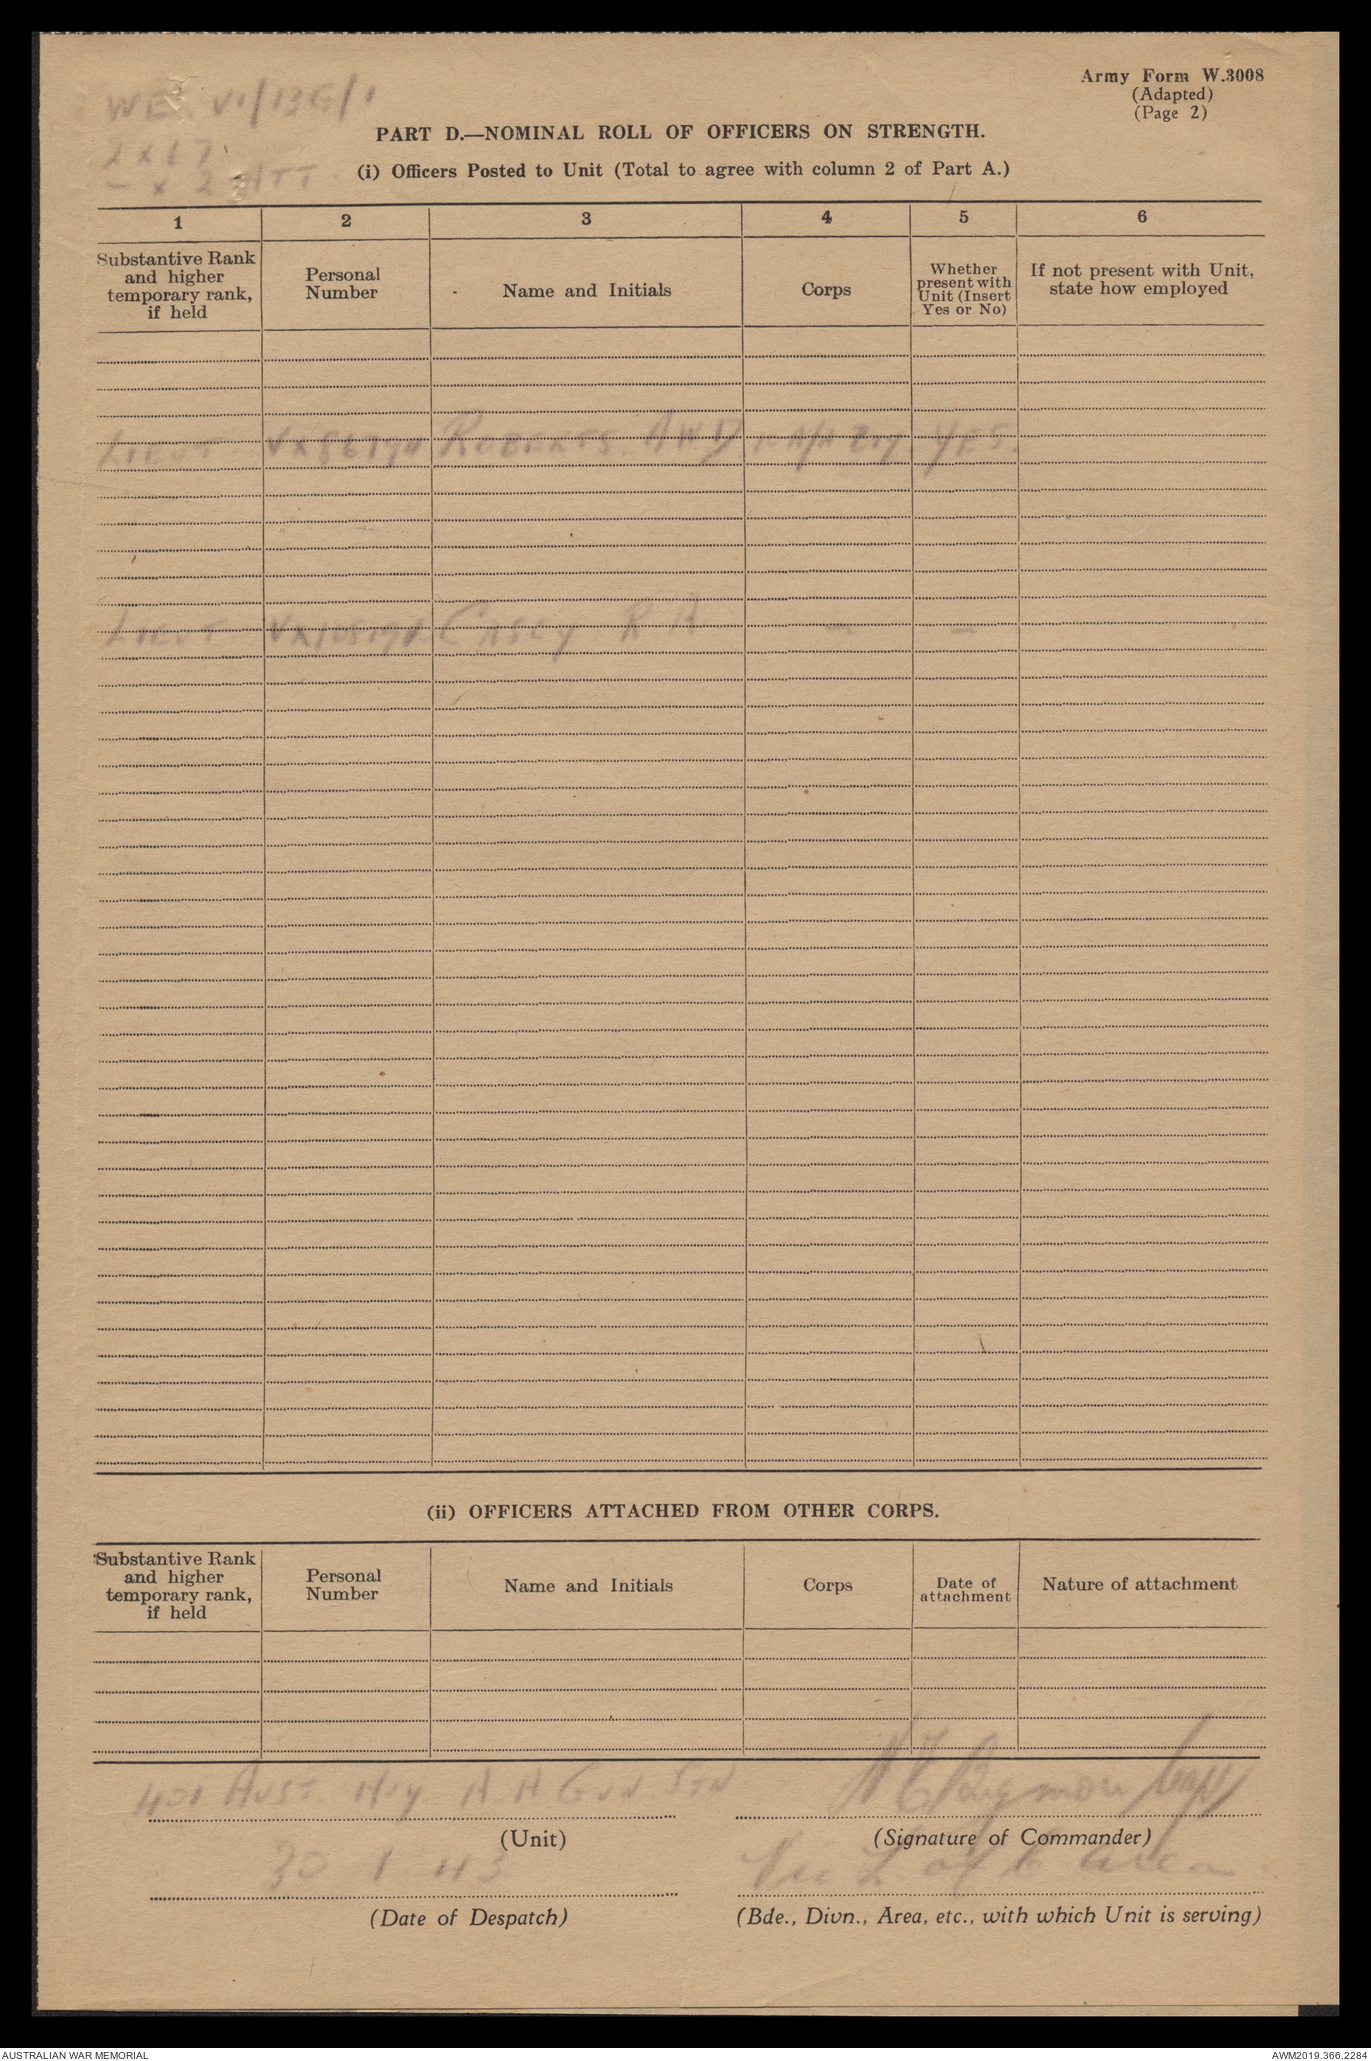 Army Form W.3008
(Adapted)
(Page 2)
WE VI/136/1
2 x 67
- x 2 ATT
PART D.—NOMINAL ROLL OF OFFICERS ON STRENGTH.
(i) Officers Posted to Unit (Total to agree with column 2 of Part A.)
1 2 3 4 5 6
Substantive Rank and higher temporary rank, if held
Personal Number
Name and Initials
Corps
Whether present with Unit (Insert Yes or No)
If not present with Unit, state how employed
LIEUT ROBERTS. A W D YES.
LIEUT CASEY R A - -
(ii) OFFICERS ATTACHED FROM OTHER CORPS.
Substantive Rank and higher temporary rank, if held
Personal Number
Name and Initials
Corps
Date of attachment
Nature of attachment
AUST. Hvy A A GUN STN
(Unit)
(Signature of Commander)
30 1 43
Vic L of C Area
(Date of Despatch)
(Bde., Divn., Area, etc., with which Unit is serving)
AUSTRALIAN WAR MEMORIAL
AWM2019.366.2284